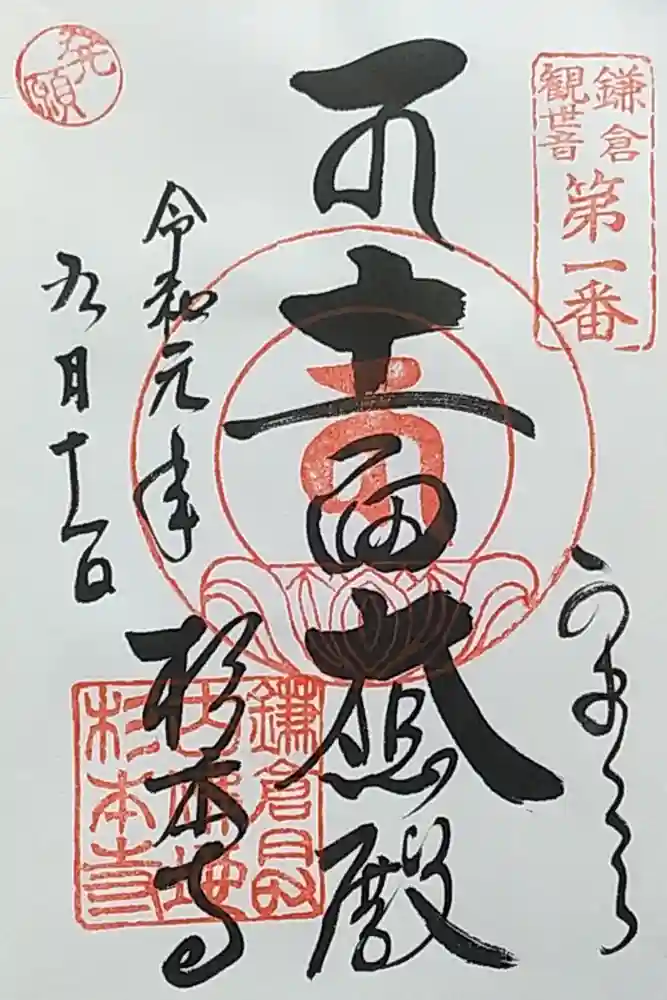 鎌倉
観世音
第一番
かまくら
十一面大悲殿
令和元年
九月十一日
杉本寺
発願
杉本寺